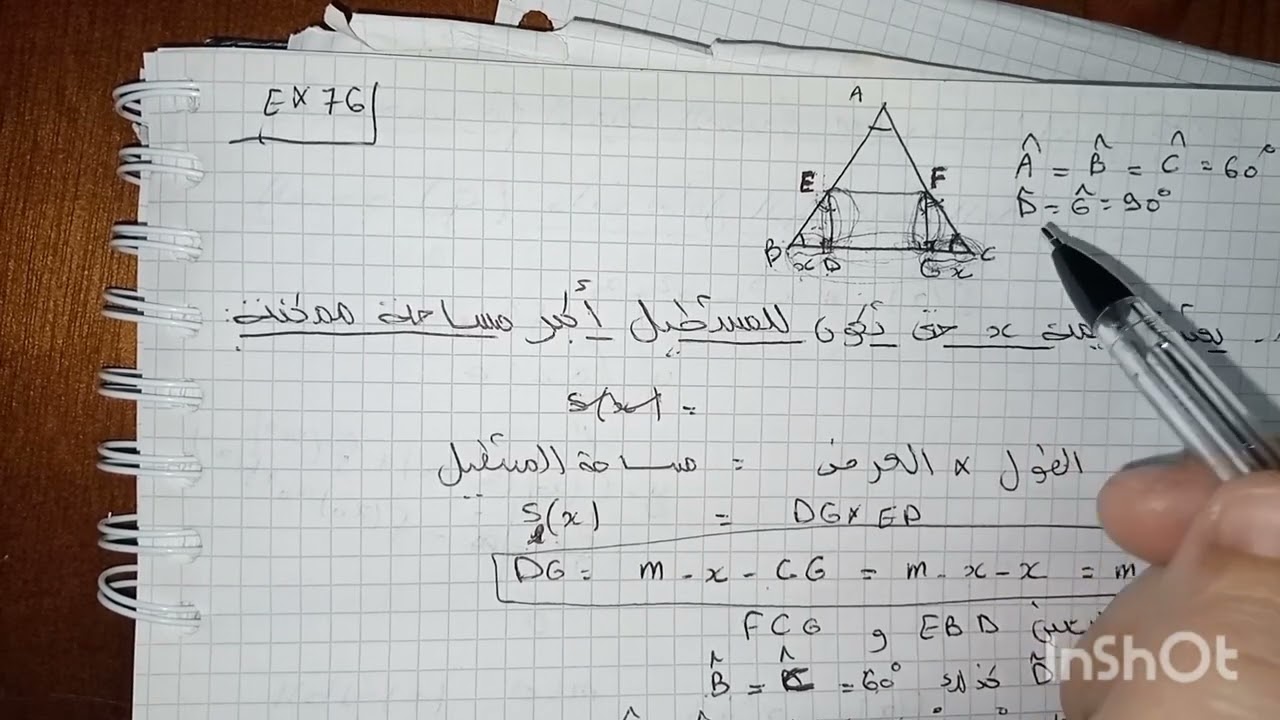 EX 76
A
E F
B x D G x C
Â = B̂ = Ĉ = 60°
D̂ = Ĝ = 90°
x حتى تكون للمستطيل أكبر مساحة ممكنة
S(x) =
مساحة المستطيل = الطول × العرض
S(x) = DG × ED
DG = m - x - CG = m - x - x = m
EBD و FCG
B̂ = Ĉ = 60°
InShOt